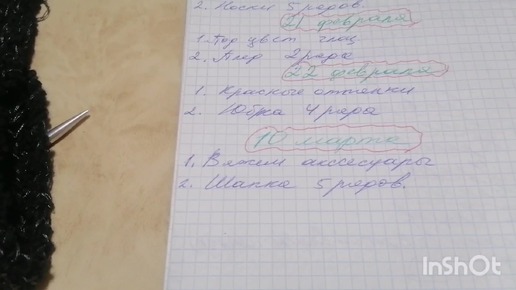 2. Носки 5 рядов.
21 февраля
1. Под цвет глаз
2. Плед 2 ряда
22 февраля
1. Красные оттенки
2. Юбка 4 ряда
10 марта
1. Вяжем аксессуары
2. Шапка 5 рядов.
InShOt